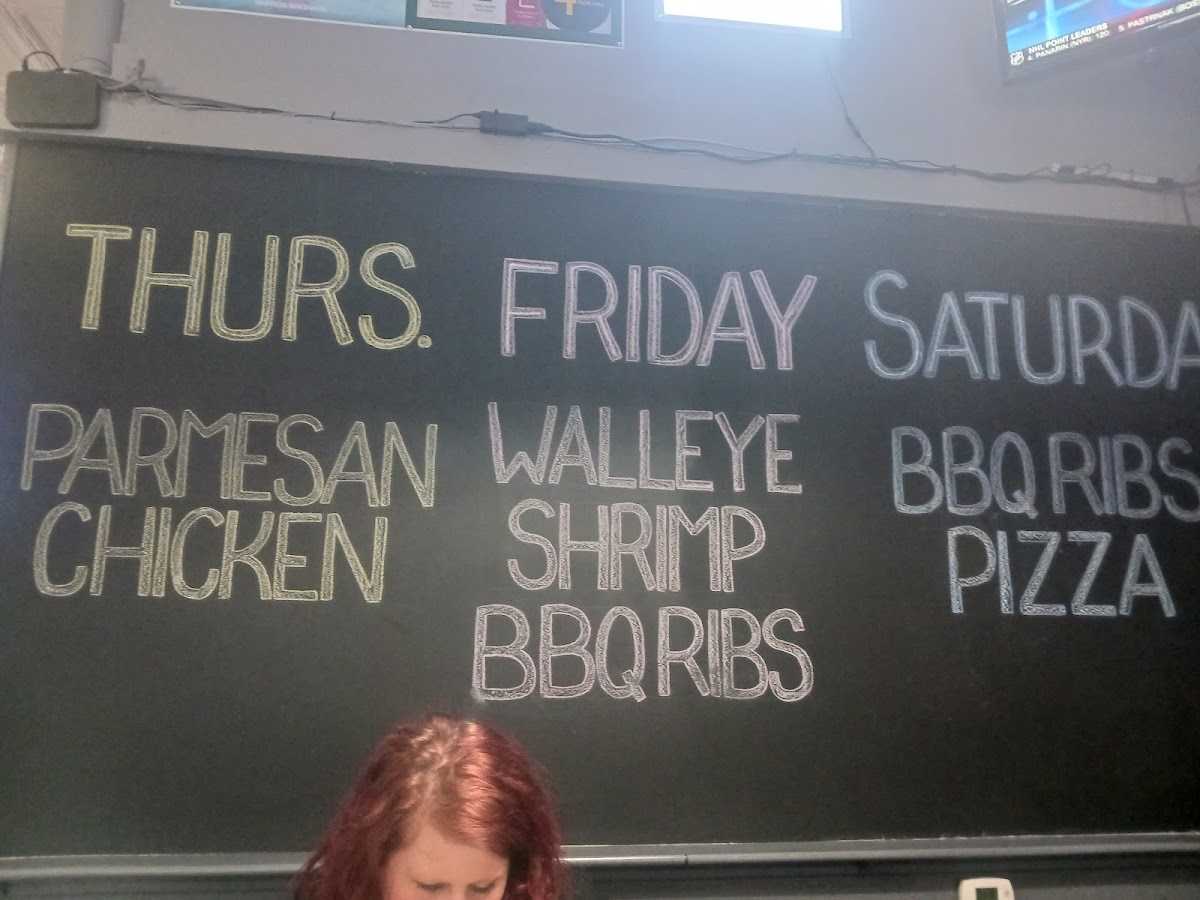 NHL POINT LEADERS
4. PANARIN (NYR) 120
5 PASTRNAK (BOS
THURS.
PARMESAN
CHICKEN
FRIDAY
WALLEYE
SHRIMP
BBQ RIBS
SATURDA
BBQ RIBS
PIZZA